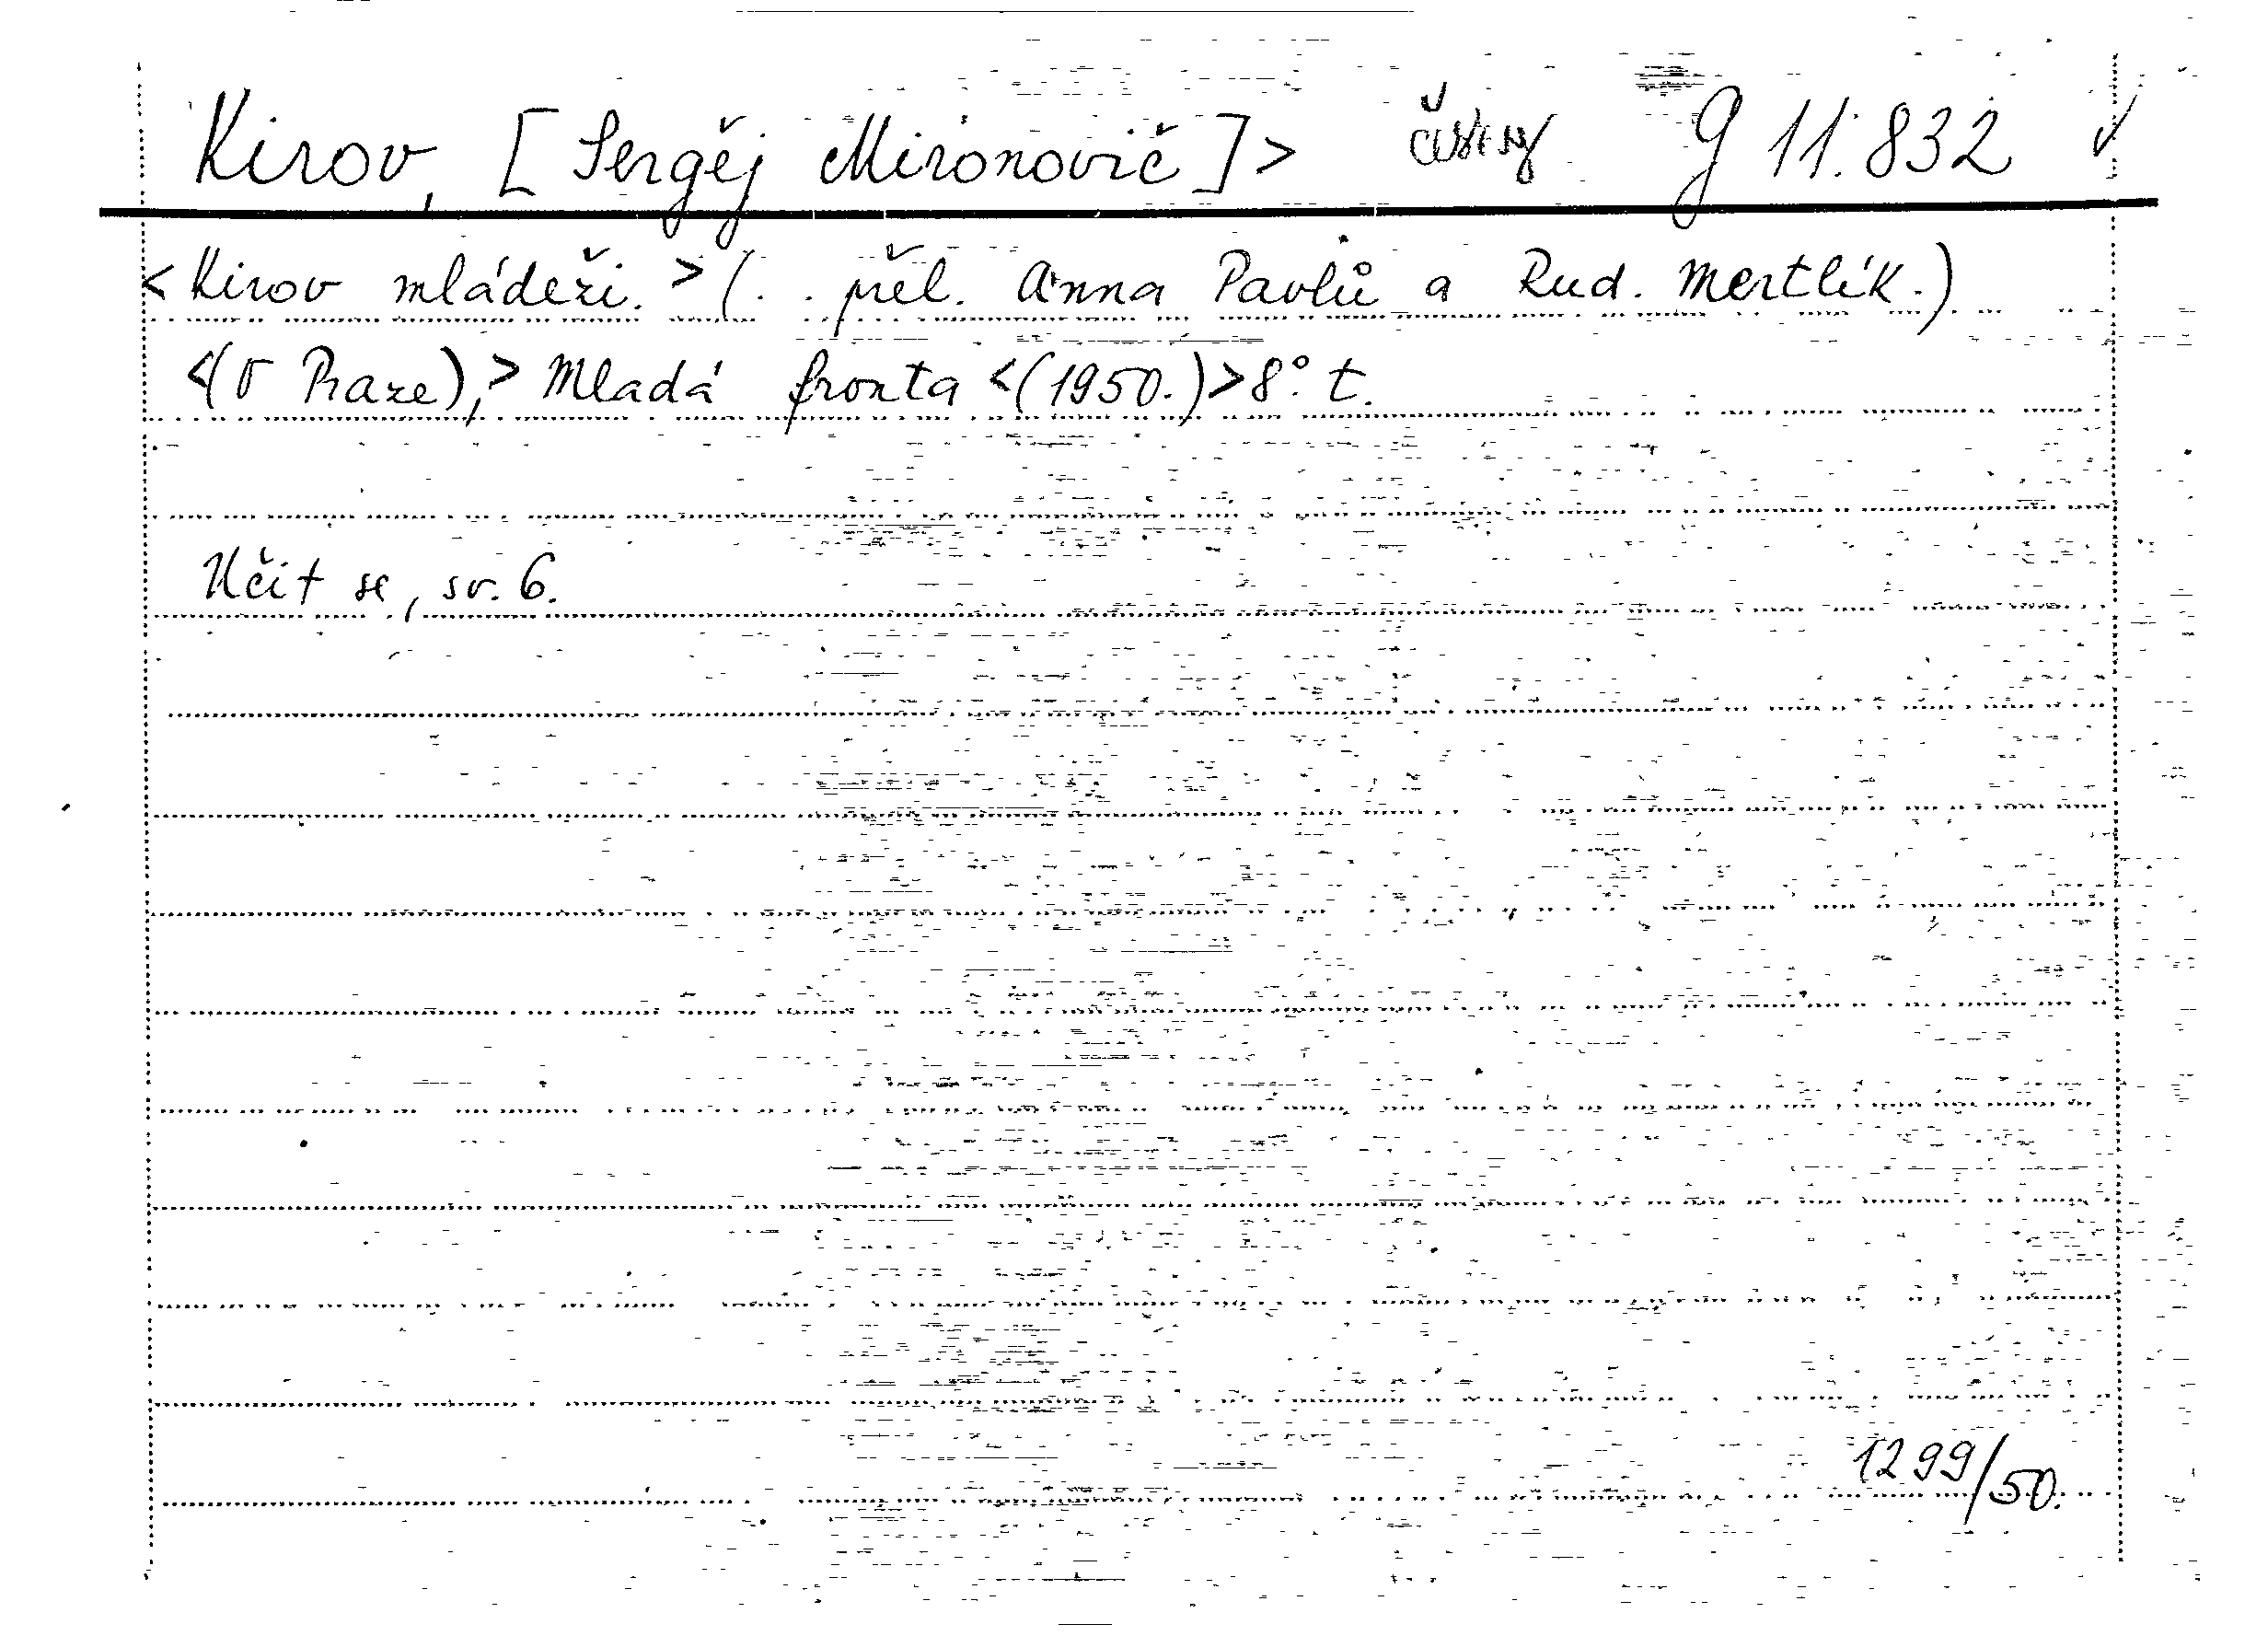 Kirov, [Sergěj Mironovič]> G 11.832 ✓
<Kirov mládeži.> (. . přel. Anna Pavlů a Rud. Mertlík.)
<(V Praze),> Mladá fronta <(1950.)> 8° t.
Učit se, sv. 6.
1299/50.